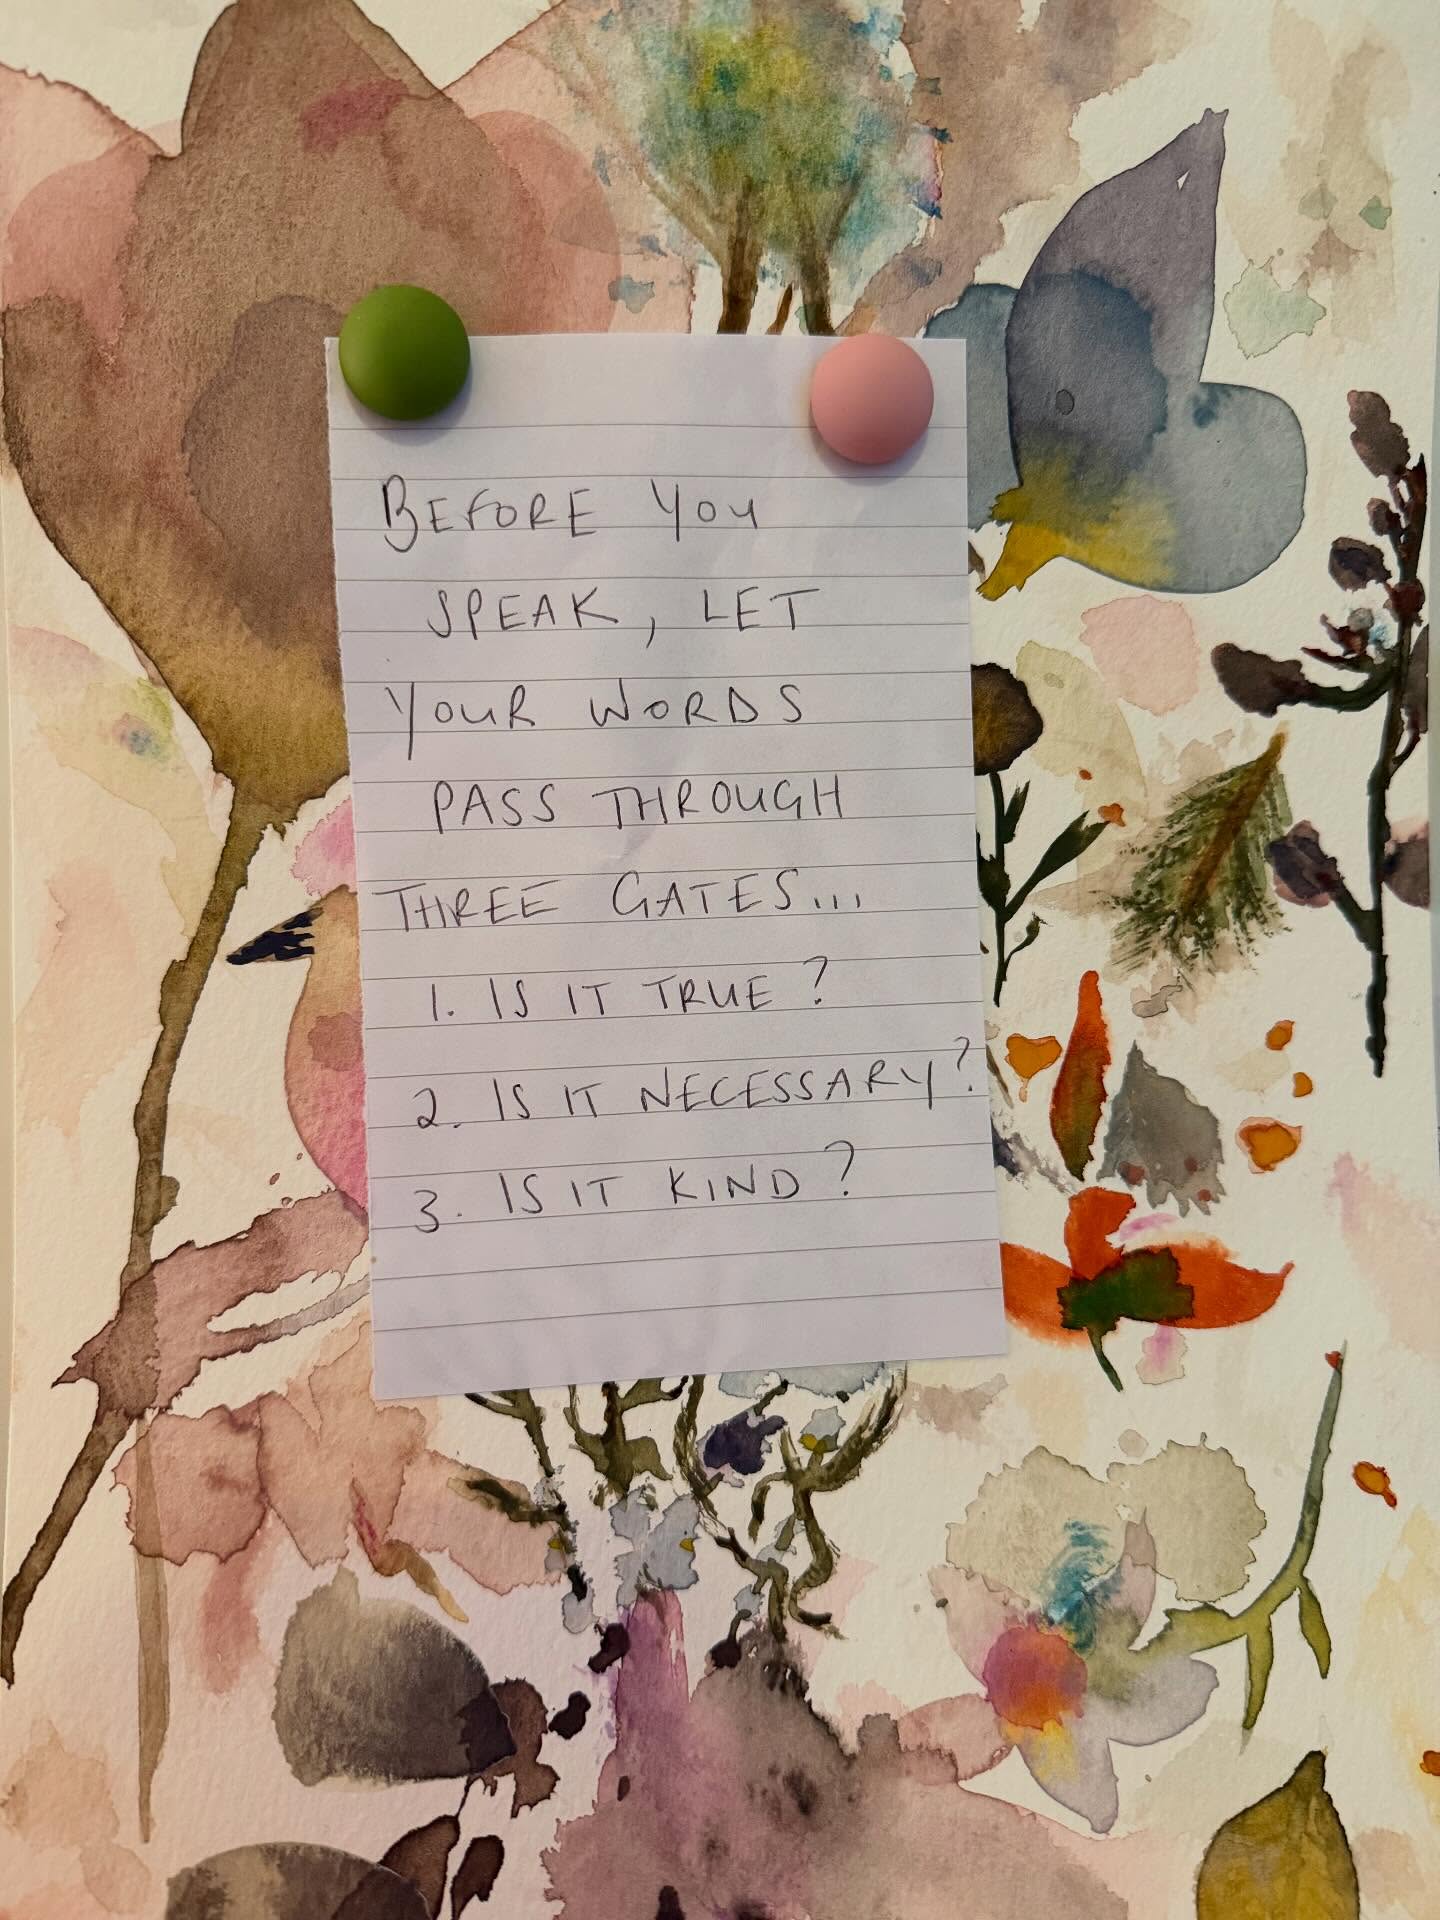 BEFORE YOU
SPEAK, LET
YOUR WORDS
PASS THROUGH
THREE GATES...
1. IS IT TRUE?
2. IS IT NECESSARY?
3. IS IT KIND?